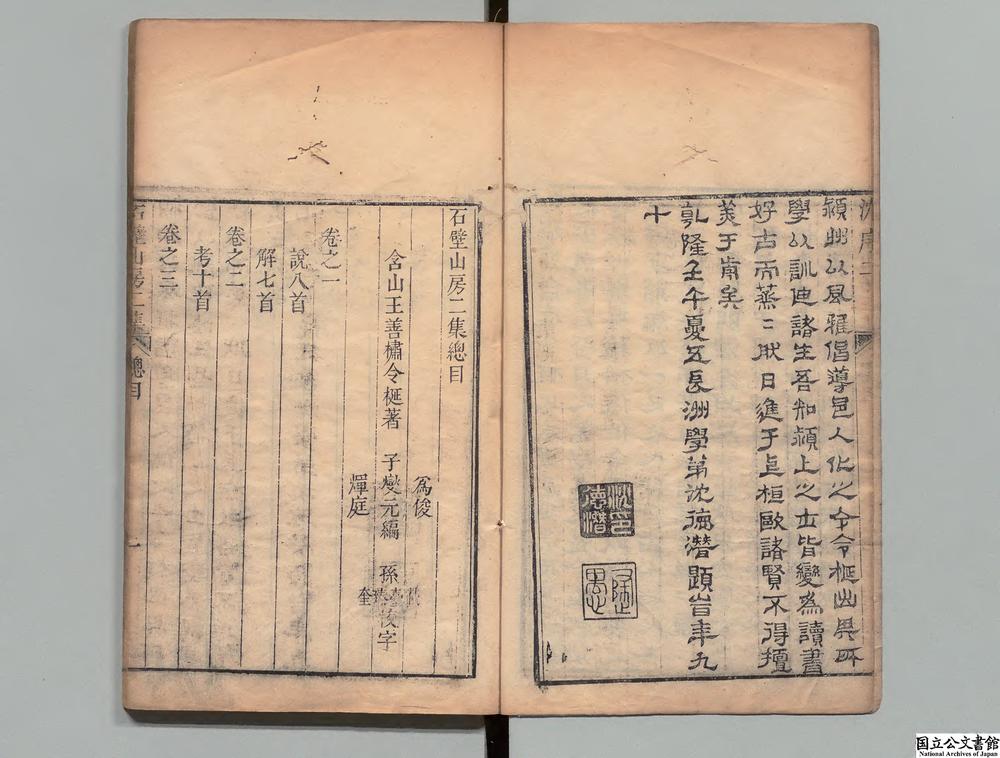 沈序二
潁州以風雅倡導邑人化之今令梴出其所
學以訓迪諸生吾知潁上之士皆變為讀書
好古而蒸〻然日進于桓歐諸賢不得擅
美于前矣
乾隆壬午夏五長洲學弟沈德潛題旹年九
十
沈印德潛
歸愚
石壁山房二集總目
為俊
含山王善橚令梴著 子燮元編 孫校字
煇庭 奎
卷之一
說八首
解七首
卷之二
考十首
卷之三
石壁山房二集 總目 一
国立公文書館
National Archives of Japan